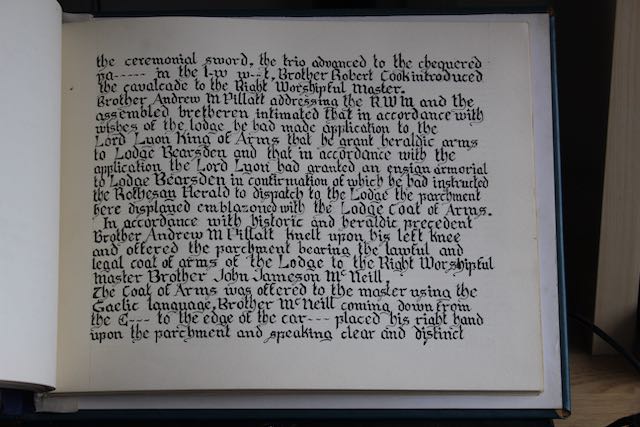 the ceremonial sword, the trio advanced to the chequered
pa----- in the l-w w--t. Brother Robert Cook introduced
the cavalcade to the Right Worshipful Master.
Brother Andrew M Pillatt addressing the R W M and the
assembled bretheren intimated that in accordance with
wishes of the lodge he had made application to the
Lord Lyon King of Arms that he grant heraldic arms
to Lodge Bearsden and that in accordance with the
application the Lord Lyon had granted an ensign armorial
to Lodge Bearsden in confirmation of which he had instructed
the Rothesay Herald to dispatch to the Lodge the parchment
here displayed emblazoned with the Lodge Coat of Arms.
In accordance with historic and heraldic precedent
Brother Andrew M Pillatt knelt upon his left knee
and offered the parchment bearing the lawful and
legal coat of arms of the Lodge to the Right Worshipful
Master Brother John Jameson McNeill.
The Coat of Arms was offered to the master using the
Gaelic language, Brother McNeill coming down from
the E--- to the edge of the car--- placed his right hand
upon the parchment and speaking clear and distinct